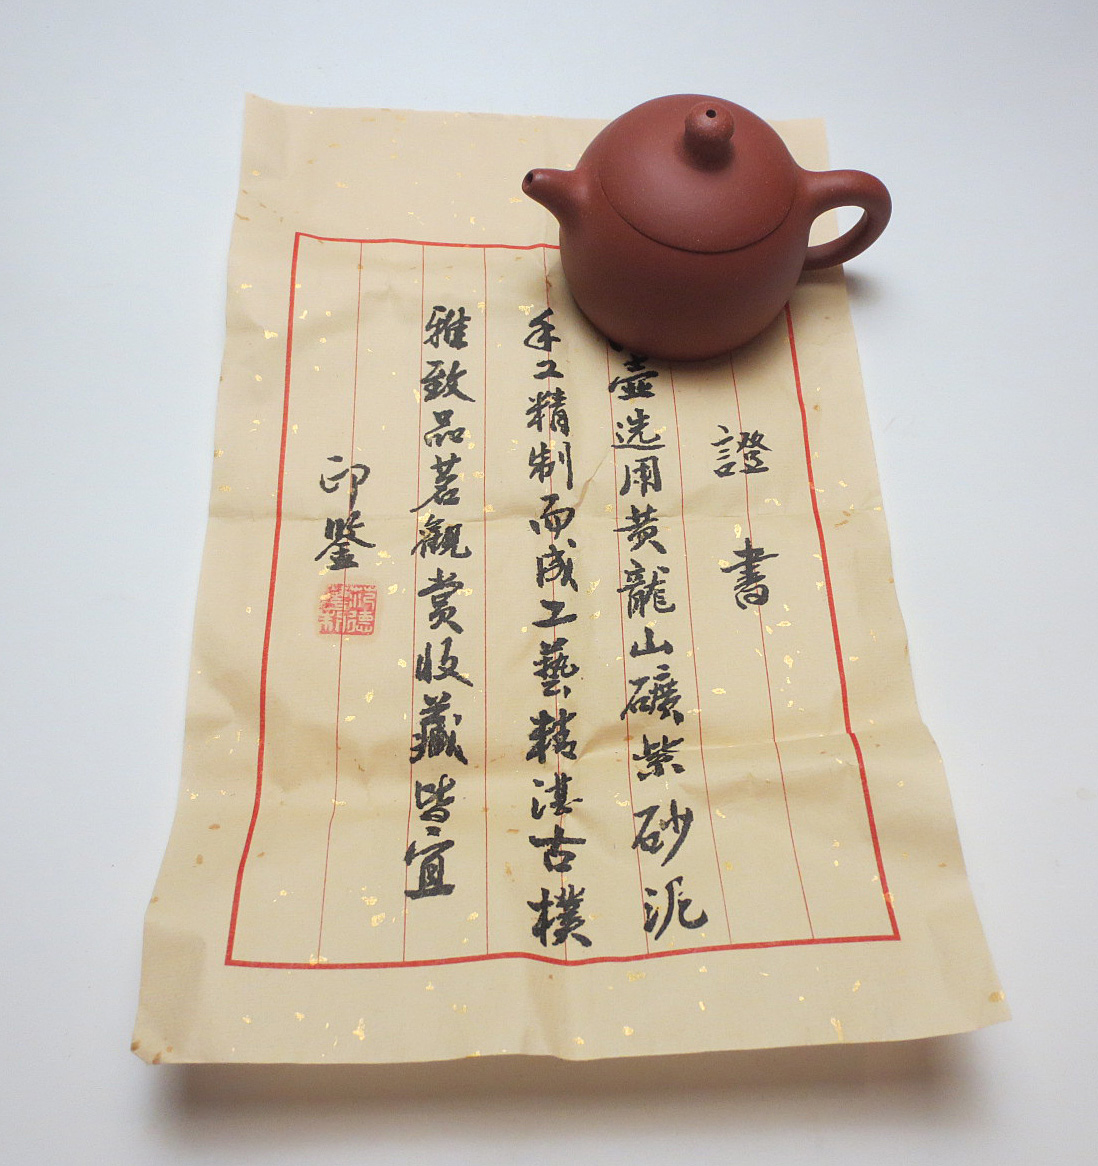 證書
壺选用黄龍山礦紫砂泥
手工精制而成工藝精湛古樸
雅致品茗觀赏收藏皆宜
印鑒